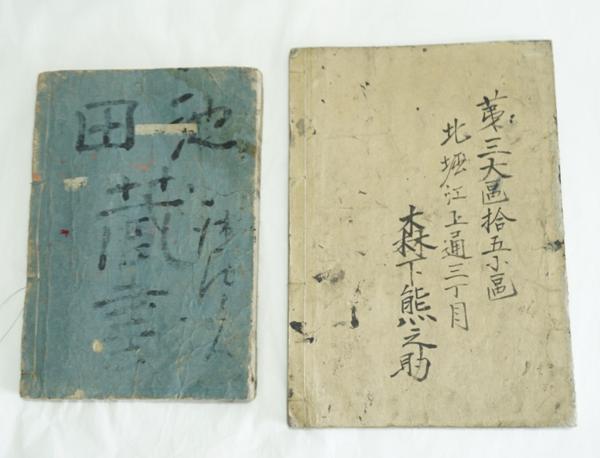 池田
蔵書
第三大區拾五小區
北堀江上通三丁目
森下熊之助